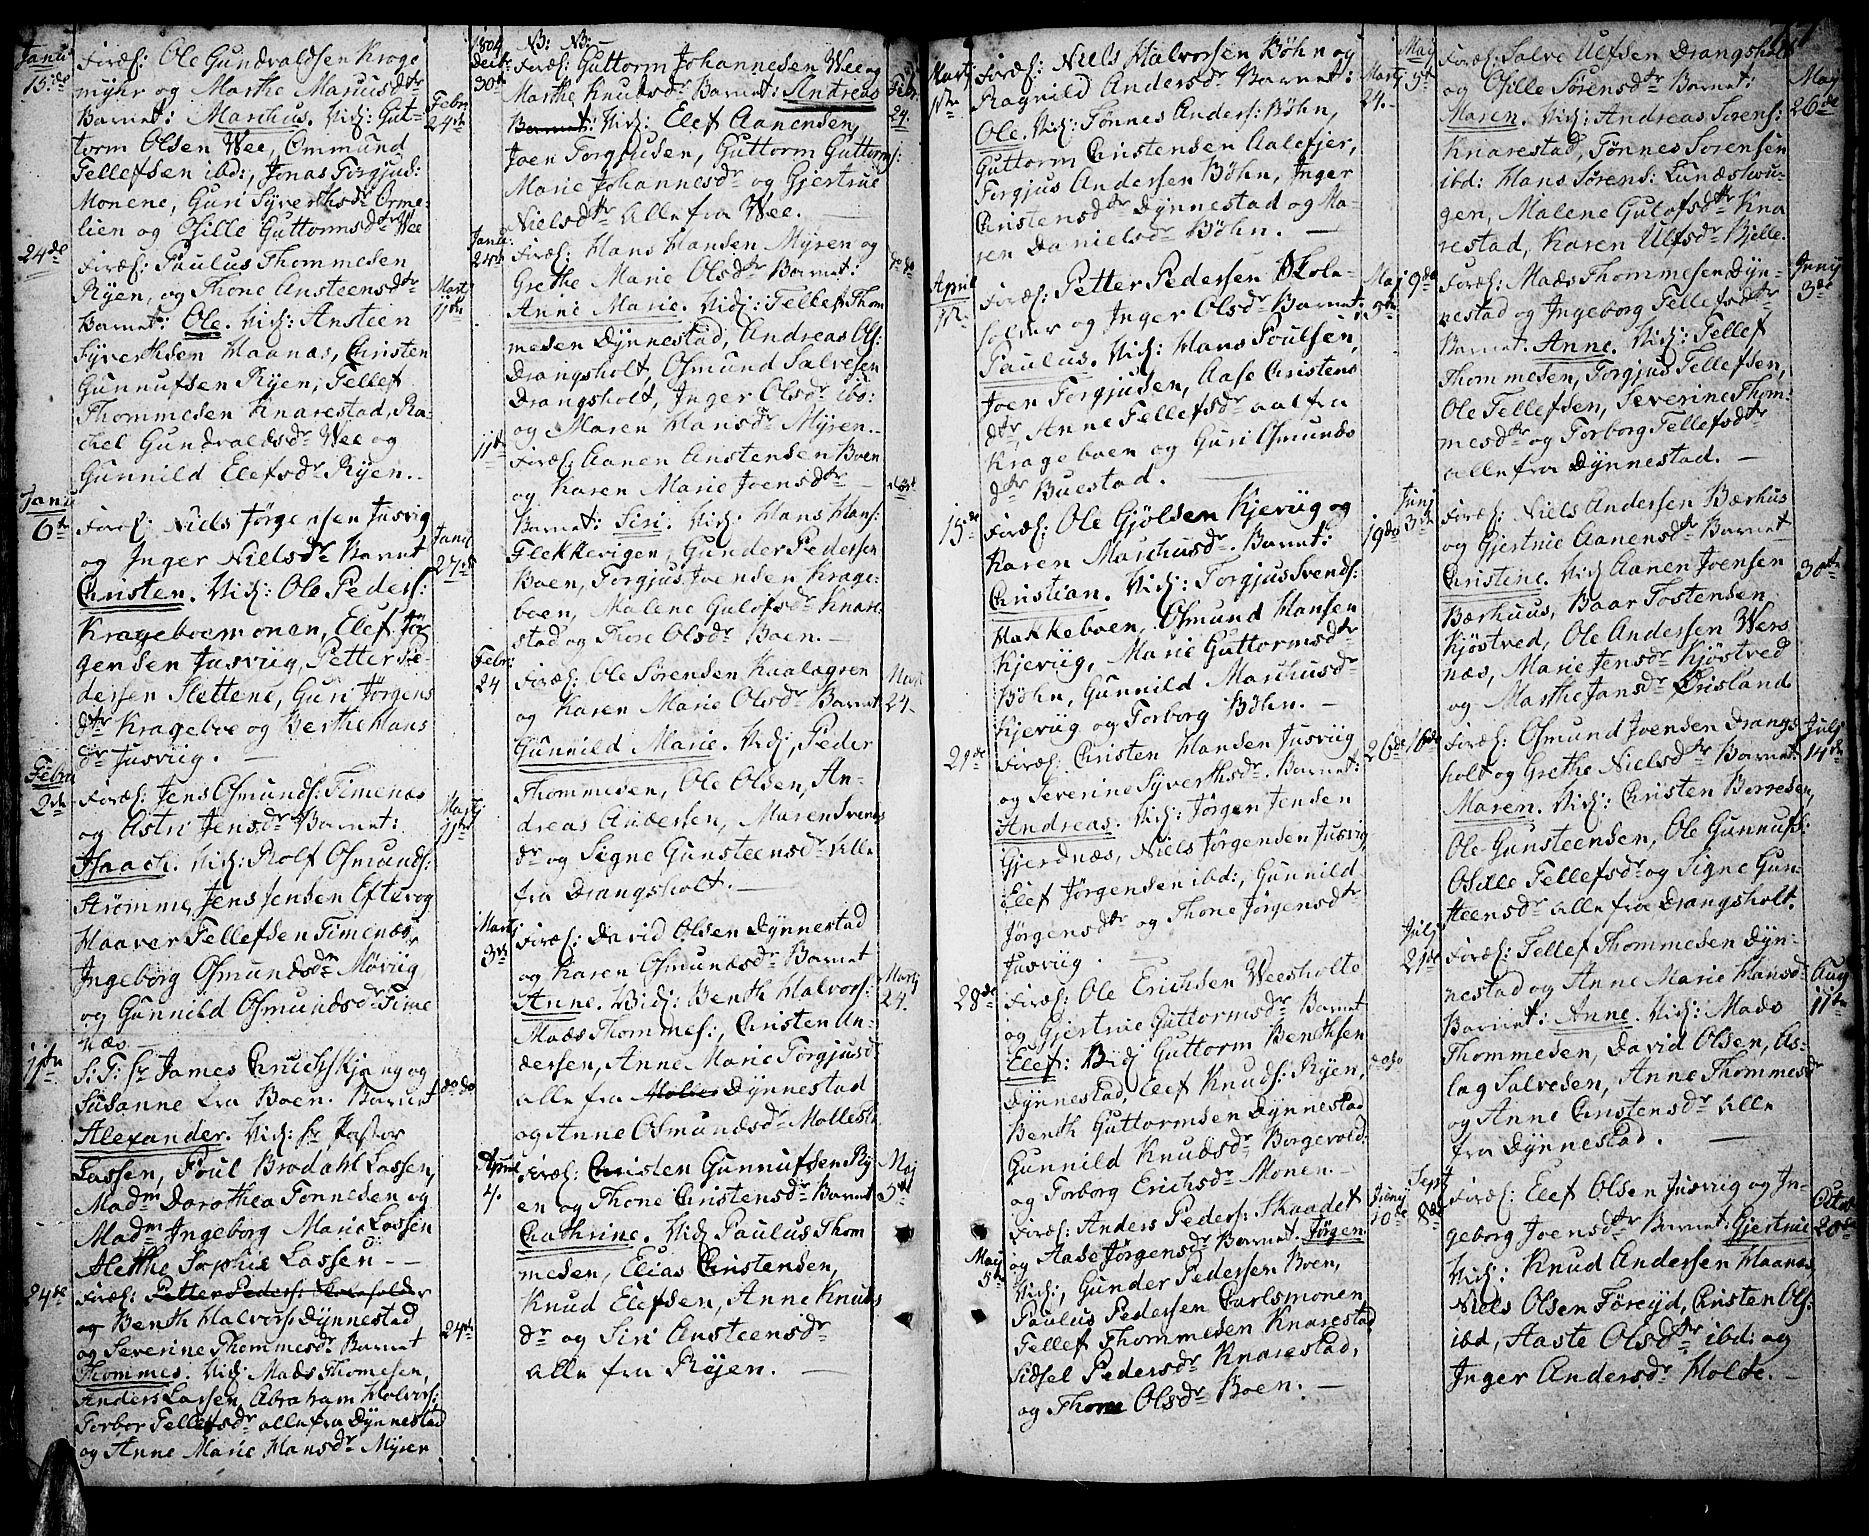 Janu
15:de
Foræl: Ole Gundvaldsen Krage
myhr og Marthe Marcusdtr
Barnet: Marchus. Vid: Gut-
torm Olsen Wee, Ommund
Tellefsen ibd:, Jonas Torgjus:
Monene, Guri Syverthsdr Orme-
lien og Osille Guttormsdtr Wee
Febr
24de
24de
Foræl: Paulus Thommesen
Ryen, og Thone Ansteensdtr
Barnet: Ole. Vid: Ansteen
Syverthsen Haanas, Christen
Gunnufsen Ryen, Tellef
Thommesen Knarestad, Ra-
chel Gundvaldsdr Wee og
Gunnild Elefsdr Ryen.
Marti
11te
Janu
6te
Foræl: Niels Jørgensen Jusvig
og Inger Nielsdr Barnet
Christen. Vid: Ole Peders:
Krageboemonen, Elef Jør
gensen Jusviig, Petter Pe-
dersen Slettene, Guri Jørgens
dtr Krageboe og Berthe Hans
dr Jusviig. —
Janu
27de
Febru
2de
Foræl: Jens Osmunds: Timenæs
og Astri Jensdr Barnet:
Isaach. Vid: Rolf Osmunds:
Strømme, Jens Jensen Eftevog
Haaver Tellefsen Timenæs,
Ingeborg Osmundsdr Møviig
og Gunnild Osmundsdr Time
næs —
Martj
11te
11te
S:T: Sr James Cruichskjang og
Susanne fra Boen. Barnet
Alexander. Vid: Sr Pastor
Lassen, Poul Brodahl Lassen,
Madm Dorothea Tønnesen og
Madm Ingeborg Maria Lassen
Alethe Sophie Lassen —
do do
24de
Foræl: Petter Peders: Skolefolder
og Benth Halvors: Dynnestad
og Severine Thommesdr Barnet
Thommes. Vid: Mads Thomesen,
Anders Larsen, Abraham Halvors:
Torbor Tellefsdr alle fra Dynnestad
og Anne Marie Hansdr Myren
24de
1804
Decbr
30te
NB: NB:
Foræl: Guttorm Johannesen Wee og
Marthe Knudsdr Barnet: Andreas
Barnet: Vid: Elef Aanensen,
Joen Torgjusen, Guttorm Guttorms:
Marie Johannesdr og Gjertrue
Nielsdtr alle fra Wee. —
Febr.
24
Janu:
24de
Foræl: Hans Hansen Myren og
Grethe Marie Olsdtr Barnet:
Anne Marie. Vid: Tellef Thom
mesen Dynnestad, Andreas Ols:
Drangsholt, Osmund Salvesen
Drangsholt, Inger Olsdr ibd:
og Maren Hansdr Myren.
do do
11te
Foræl: Aanen Anstensen Boen
og Karen Marie Joensdtr
Barnet: Siri. Vid: Hans Hans:
Flekkerigen, Gunder Pedersen
Boen, Torgjus Joensen Krage-
boen, Malene Gulofsdr Knare
stad og Thore Olsdr Boen. —
Febr:
24
Foræl: Ole Sørensen Kualægren
og Karen Marie Olsdr Barnet
Gunnild Marie. Vid: Peder
Thommesen, Ole Olsen, An-
dreas Andersen, Maren Svends
dr og Signe Gunsteensdr alle
fra Drangsholt. —
Mart
24
Martj
3de
Foræl: David Olsen Dynnestad
og Karen Osmundsdr Barnet
Anne. Vid: Benth Halvors:
Mads Thommes:, Christen An-
dersen, Anne Marie Torgjusd:
alle fra Dynnestad
og Anne Osmundsdr Mollest
Martj
24
April
4.
Foræl: Christen Gunnufsen Ry
en og Thone Christensdr Barnet
Chathrine. Vid: Paulus Thom
mesen, Elias Christensen,
Knud Elefsen, Anne Knuds
dr og Siri Ansteensdr
alle fra Ryen. —
Maj
5te
Martj
1te
Foræl: Niels Halvorsen Bøhn og
Ragnild Andersdr Barnet:
Ole. Vid: Tønnes Anders: Bøhn,
Guttorm Christensen Aalefjer,
Torgjus Andersen Bøhn, Inger
Christensdtr Dynnestad og Ma-
ren Danielsdr Bøhn. —
Martj
24.
April
1te
Foræl: Petter Pedersen Skole-
folder og Inger Olsdr Barnet:
Paulus. Vid: Hans Poulsen,
Joen Torgjusen, Aase Christens
dtr, Anne Tellefsdr aal fra
Krageboen og Guri Osmunds
dtr Buestad.
Maj
5te
15de
Foræl: Ole Gjølsen Kjeviig og
Karen Marchusdr. Barnet:
Christian. Vid: Torgjus Svends:
Hakkeboen, Osmund Hansen
Kjeviig, Marie Guttormsdtr
Bøhn, Gunnild Marchusdr
Kjeviig og Torborg Bøhn. —
19de
21de
Foræl: Christen Hansen Jusviig
og Severine Syverthsdr. Barnet:
Andreas. Vid: Jørgen Jensen
Gjerdnæs, Niels Jørgensen Jusvig,
Elef Jørgensen ibd:, Gunnild
Jørgensdtr og Thone Jørgensdtr
Jusviig.
26de
28de
Foræl: Ole Erichsen Weesholte
og Gjertrue Guttormsdr Barnet
Elef: Vid: Guttorm Benthsen
Dynnestad, Elef Knuds: Ryen,
Benth Guttormsen Dynnestad
Gunnild Knudsdr Borgevold:
og Torborg Erichsdr Monen. —
do do
Maj
5te
Foræl: Anders Peders: Skaadet
og Aase Jørgensdr Barnet. Jørgen
Vid:, Gunder Pedersen Boen,
Paulus Pedersen Carlsmonen
Tellef Thommesen Knarestad
Sidsel Pedersdr Knarestad,
og Thone Olsdr Boen. —
Juny
10de
Maj
5te
Foræl: Salve Ulfsen Drangsholt
og Osille Sørensdr Barnet:
Maren. Vid: Andreas Sørens:
Knarestad, Tønnes Sørensen
ibd: Hans Sørens: Lundshou-
gen, Malene Gulofsdtr Kna
restad, Karen Ulfsdr Bjelle.
May
26de
9de
Foræl: Mads Thommesen Dyn-
nestad og Ingeborg Tellefsdtr
Barnet. Anne. Vid: Tellef
Thommesen, Torgjus Tellefsen,
Ole Tellefsen, Severine Thom-
mesdtr og Torborg Tellefsdtr
alle fra Dynnestad. —
Juny
3de
Junj
3de
Foræl: Niels Andersen Bærhus
og Gjertrue Aanensdtr Barnet
Christine. Vid Aanen Joensen
Bærhuus, Baar Tostensen
Kjøstved, Ole Andersen Wers
næs, Marie Jensdr Kjøstved
og Marthe Jansdr Grisland
30te
16de
Foræl: Osmund Joensen Drangs
holt og Grethe Nielsdtr Barnet:
Maren. Vid: Christen Børresen,
Ole Gunsteensen, Ole Gunnufs:
Osille Tellefsdr og Signe Gun-
steensdr alle fra Drangsholt.
Julj
14de
Julj
21de
Foræl: Tellef Thommesen Dyn-
nestad og Anne Marie Hansdr
Barnet: Anne. Vid: Mads
Thommesen, David Olsen, As-
lag Salvesen, Anne Thommesdr
og Anne Christensdr alle
fra Dynnestad. —
Aug
11te
Septj
8de
Foræl: Elef Olsen Jusviig og In-
geborg Joensdtr Barnet: Gjertrue
Vid: Knud Andersen Haanes,
Niels Olsen Føreyd, Christen Ols:
ibd, Aaste Olsdtr ibd: og
Inger Andersdr Holte. —
Octob
20de